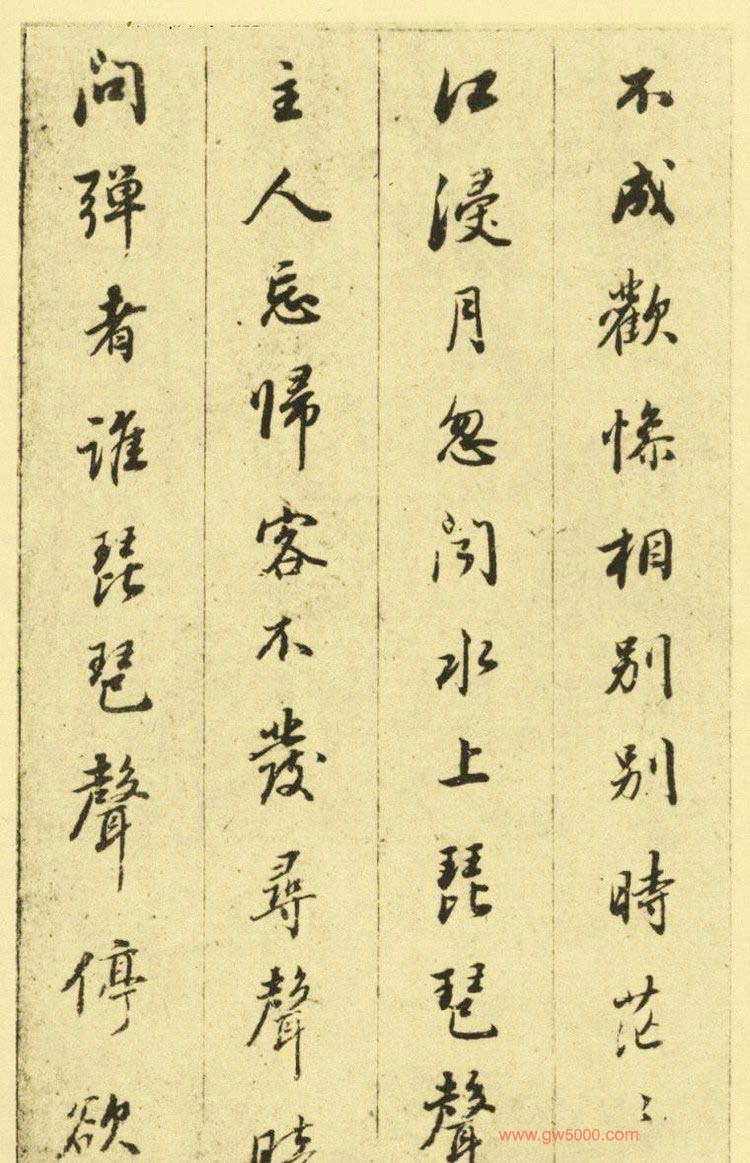 不成歡惨相別別時茫〻
江浸月忽闻水上琵琶聲
主人忘歸客不發尋聲暗
问弹者誰琵琶聲停欲
www.gw5000.com